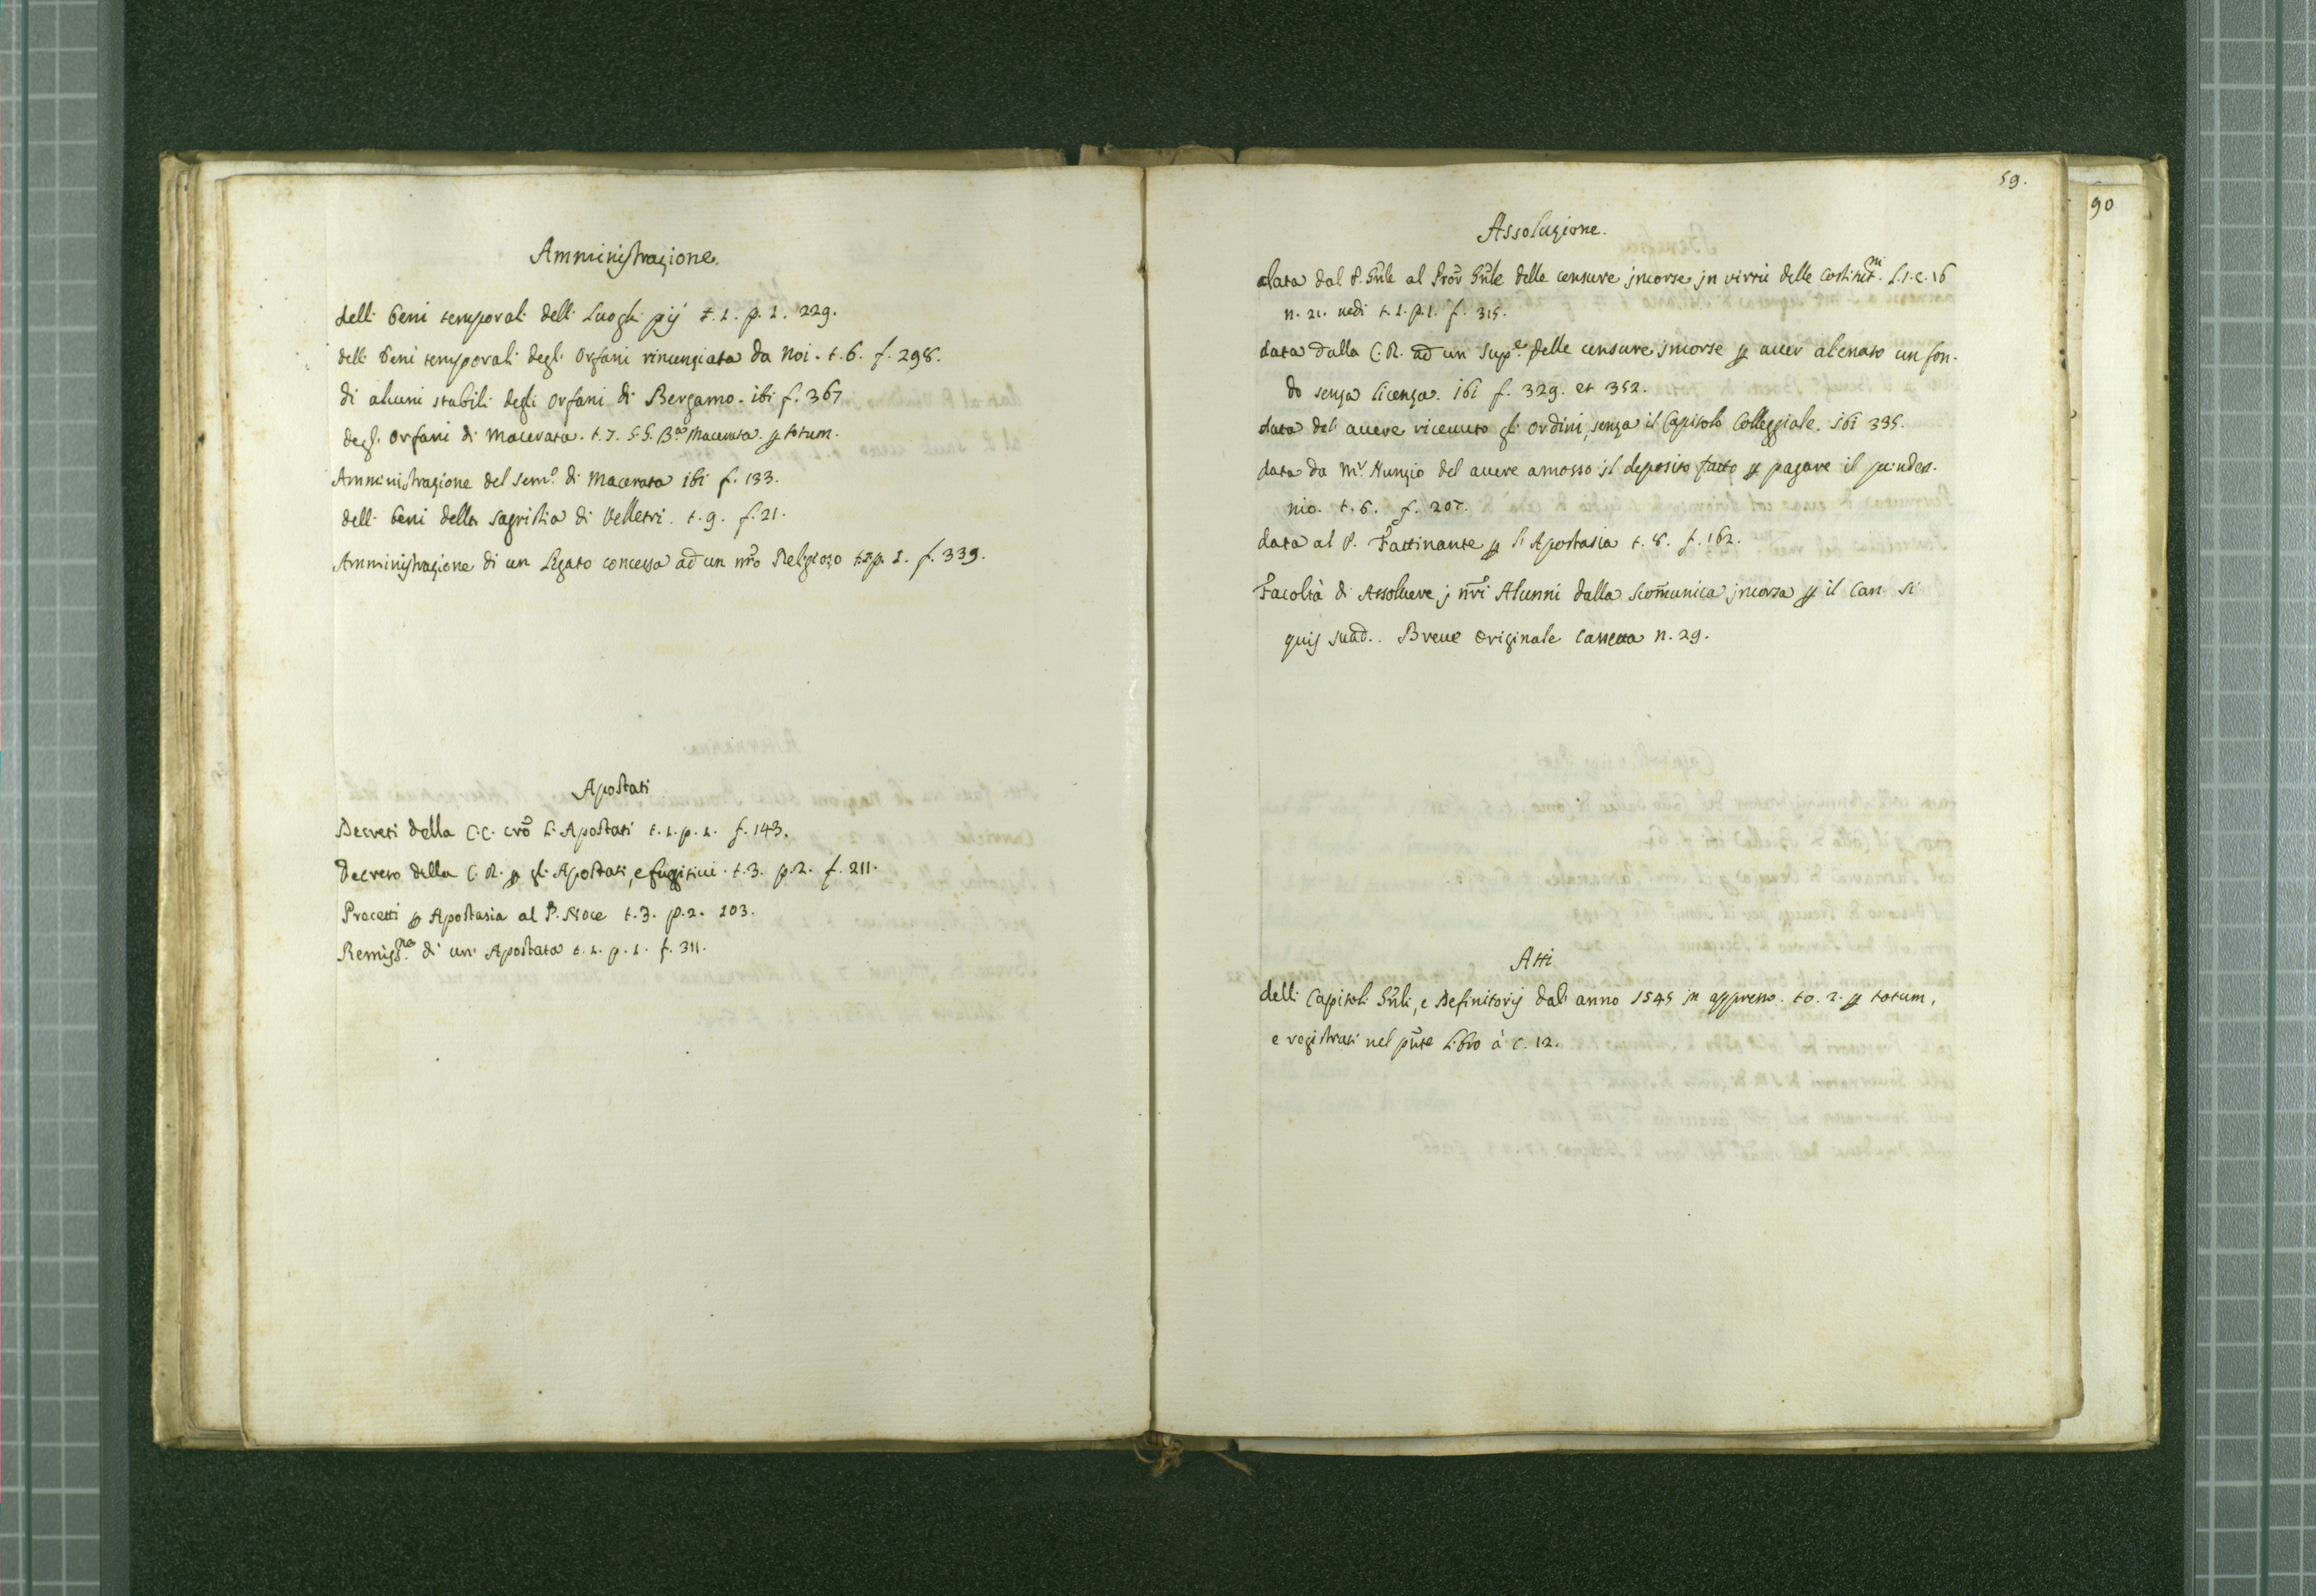 Amministrazione.
delli beni temporali delli Luoghi pij t. 1. p. 1. 229.
delli beni temporali degli Orfani rinunziata da noi. t. 6. f. 298.
di alcuni stabili degli orfani di Bergamo. ibi f. 367
degl' Orfani di Macerata. t. 7. Macerata. ꝑ totum.
Amministrazione del Sem.º di Macerata ibi f. 133.
delli beni della Sagristia di Velletri. t. 9. f. 21.
Amministrazione di un Legato concessa ad un nr̃o Religioso p. 1. f. 339.
Apostati
Decreti della C.C. cõ L'Apostati t. 1. p. 1. f. 143.
Decreto della C. R. ꝑ gl'Apostati, e fugitivi. t. 3. p. 2. f. 211.
Processi ꝑ Apostasia al P. Noce t. 3. p. 2. 103.
Remiss.ne di un' Apostata t. 1. p. 1. f. 311.
59.
90
Assoluzione.
data dal P. Gñle al Proc̃ Gñle delle censure jncorse jn virtù delle Costitut.ni L. 1. c. 16
n. 21. vedi t. 1. p. 1. f. 315.
data dalla C. R. ad un Sup.e delle censure jncorse ꝑ auer alienato un fon-
do senza licenza. ibi f. 329. et 352.
data del' auere riceuuto gli ordini, senza il Capitolo Collegiale. ibi 335.
data da M.r Nunzio del auere amosso jl deposito fatto ꝑ pagare il quinden-
nio. t. 6. f. 207.
data al P. Fattinante ꝑ l'Apostasia t. 8. f. 162.
Facoltà di Assoluere j nr̃i Alunni dalla scom̃unica jncorsa ꝑ il Can. si
quis suad.. Breue originale Cassetta n. 29.
Atti
delli Capitoli Gñli, e Definitorij dall'anno 1545 jn appresso. to. 2. ꝑ totum,
e registrati nel pñte Libro à c. 12.